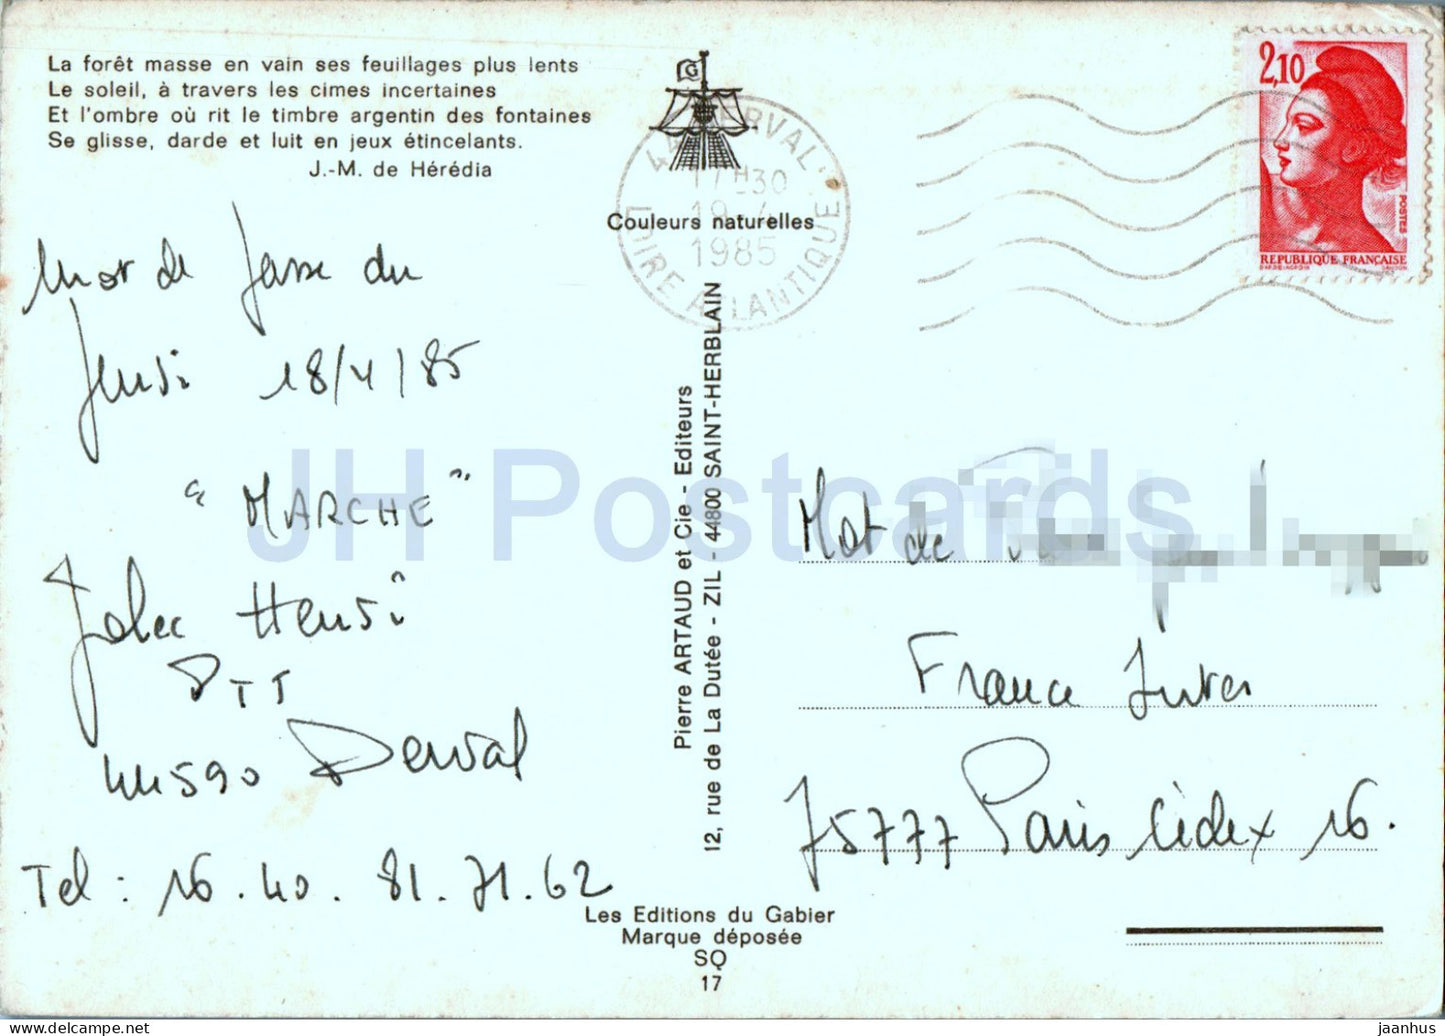 La forêt masse en vain ses feuillages plus lents
Le soleil, à travers les cimes incertaines
Et l'ombre où rit le timbre argentin des fontaines
Se glisse, darde et luit en jeux étincelants.
J.-M. de Hérédia
Mot de passe du
Jeudi 18/4/85
"MARCHE"
Henri
PTT
44590 Derval
Tel : 16.40.81.71.62
G
Couleurs naturelles
44 DERVAL
17H30
19-4
1985
LOIRE ATLANTIQUE
Pierre ARTAUD et Cie - Editeurs
12, rue de La Dutée - ZIL - 44800 SAINT-HERBLAIN
Les Editions du Gabier
Marque déposée
SQ
17
2,10
POSTES
REPUBLIQUE FRANÇAISE
Mot de
France Inter
75777 Paris Cédex 16.
JH Postcards
jaanhus